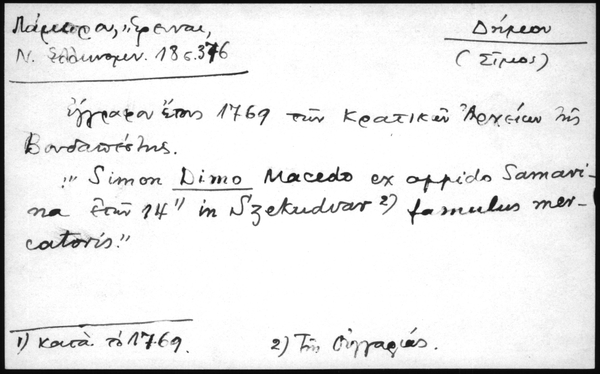 Λάμπρου, "Ἔρευναι,
Ν. Ἑλληνομν. 18 σ. 376
Δήμου
(Σῖμος)
Ἔγγραφον ἔτους 1769 τῶν Κρατικῶν Ἀρχείων τῆς
Βουδαπέστης.
"Simon Dimo Macedo ex oppido Samari-
na ἐτῶν 14" in Szekudvar 2) famulus mer-
catoris."
1) Κατὰ τὸ 1769.
2) Τῆς Οὑγγαρίας.